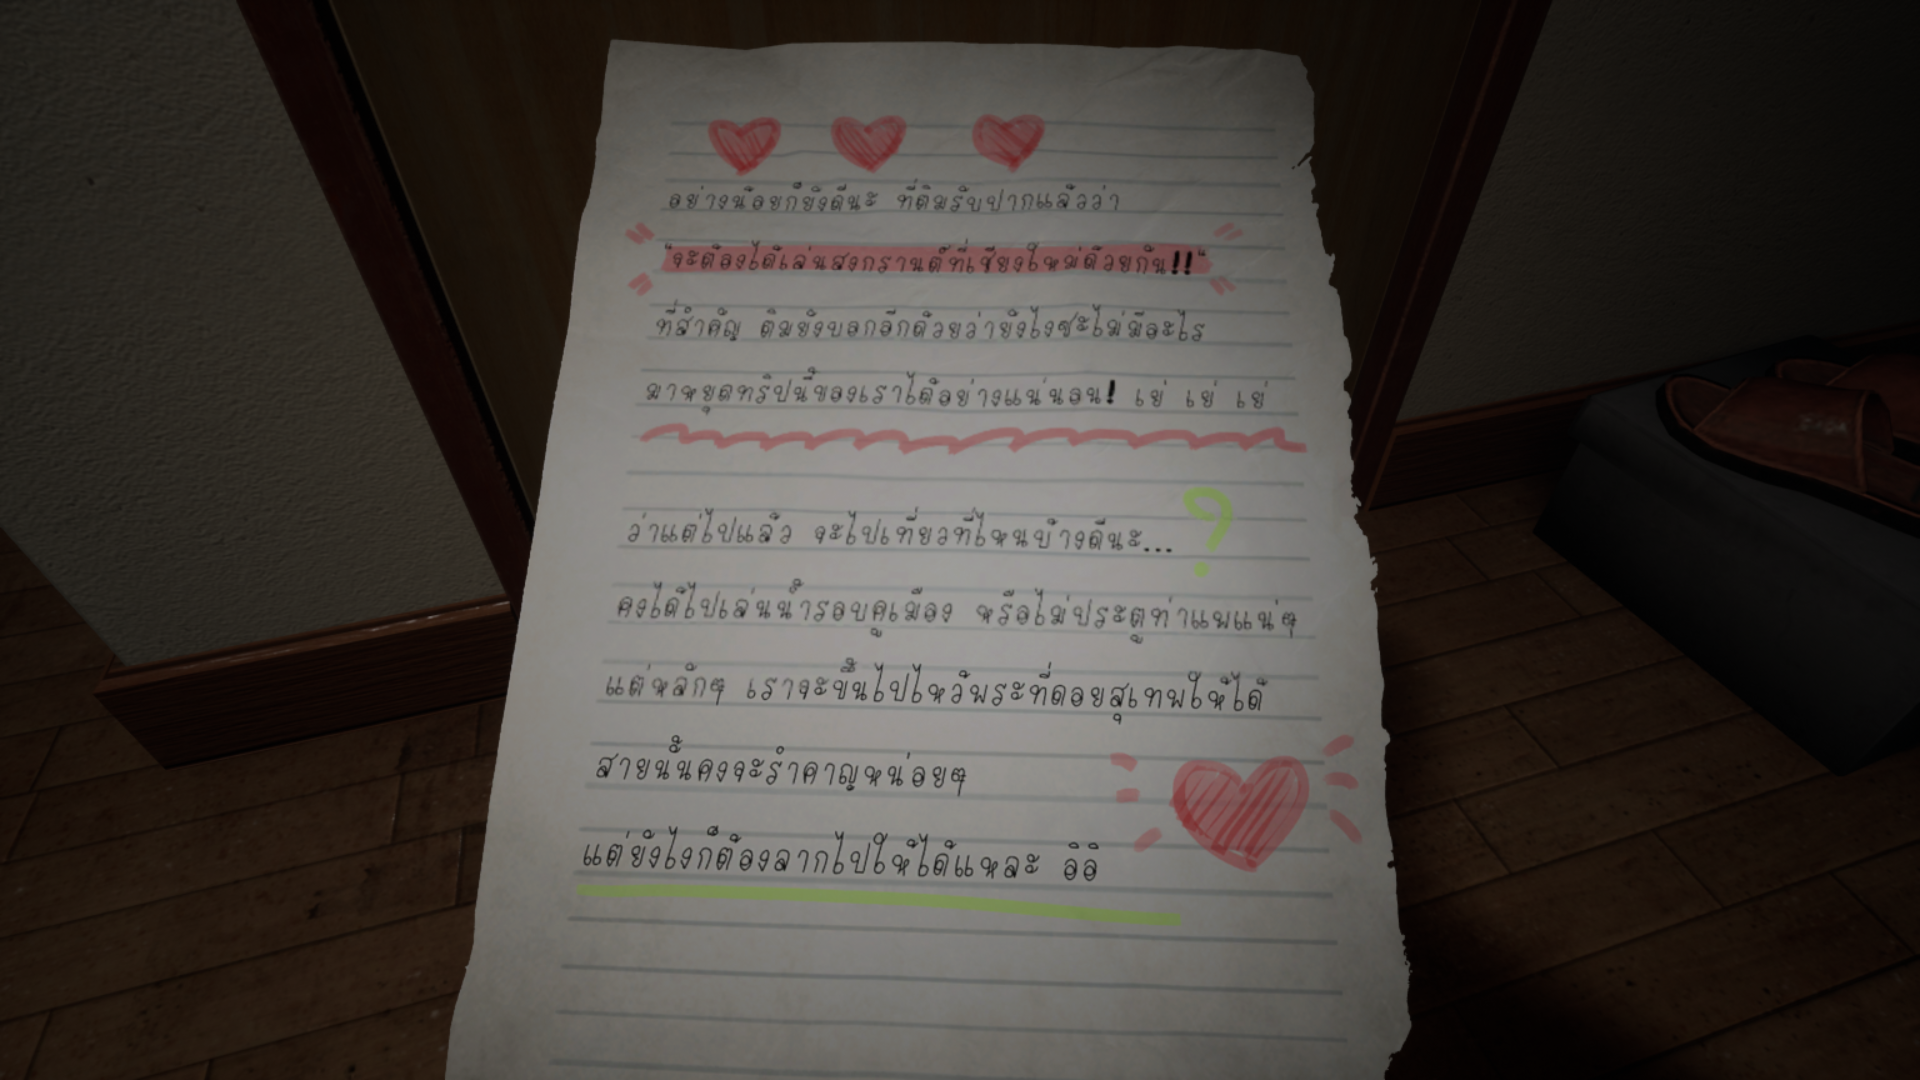 อย่างน้อยก็ยังดีนะ ที่ติมรับปากแล้วว่า
"จะต้องได้เล่นสงกรานต์ที่เชียงใหม่ด้วยกัน!!"
ที่สำคัญ ติมยังบอกอีกด้วยว่ายังไงซะไม่มีอะไร
มาหยุดทริปนี้ของเราได้อย่างแน่นอน! เย่ เย่ เย่
ว่าแต่ไปแล้ว จะไปเที่ยวที่ไหนบ้างดีนะ... ?
คงได้ไปเล่นน้ำรอบคูเมือง หรือไม่ประตูท่าแพแน่ๆ
แต่หลักๆ เราจะขึ้นไปไหว้พระที่ดอยสุเทพให้ได้
สายนั้นคงจะรำคาญหน่อยๆ
แต่ยังไงก็ต้องลากไปให้ได้แหละ อิอิ